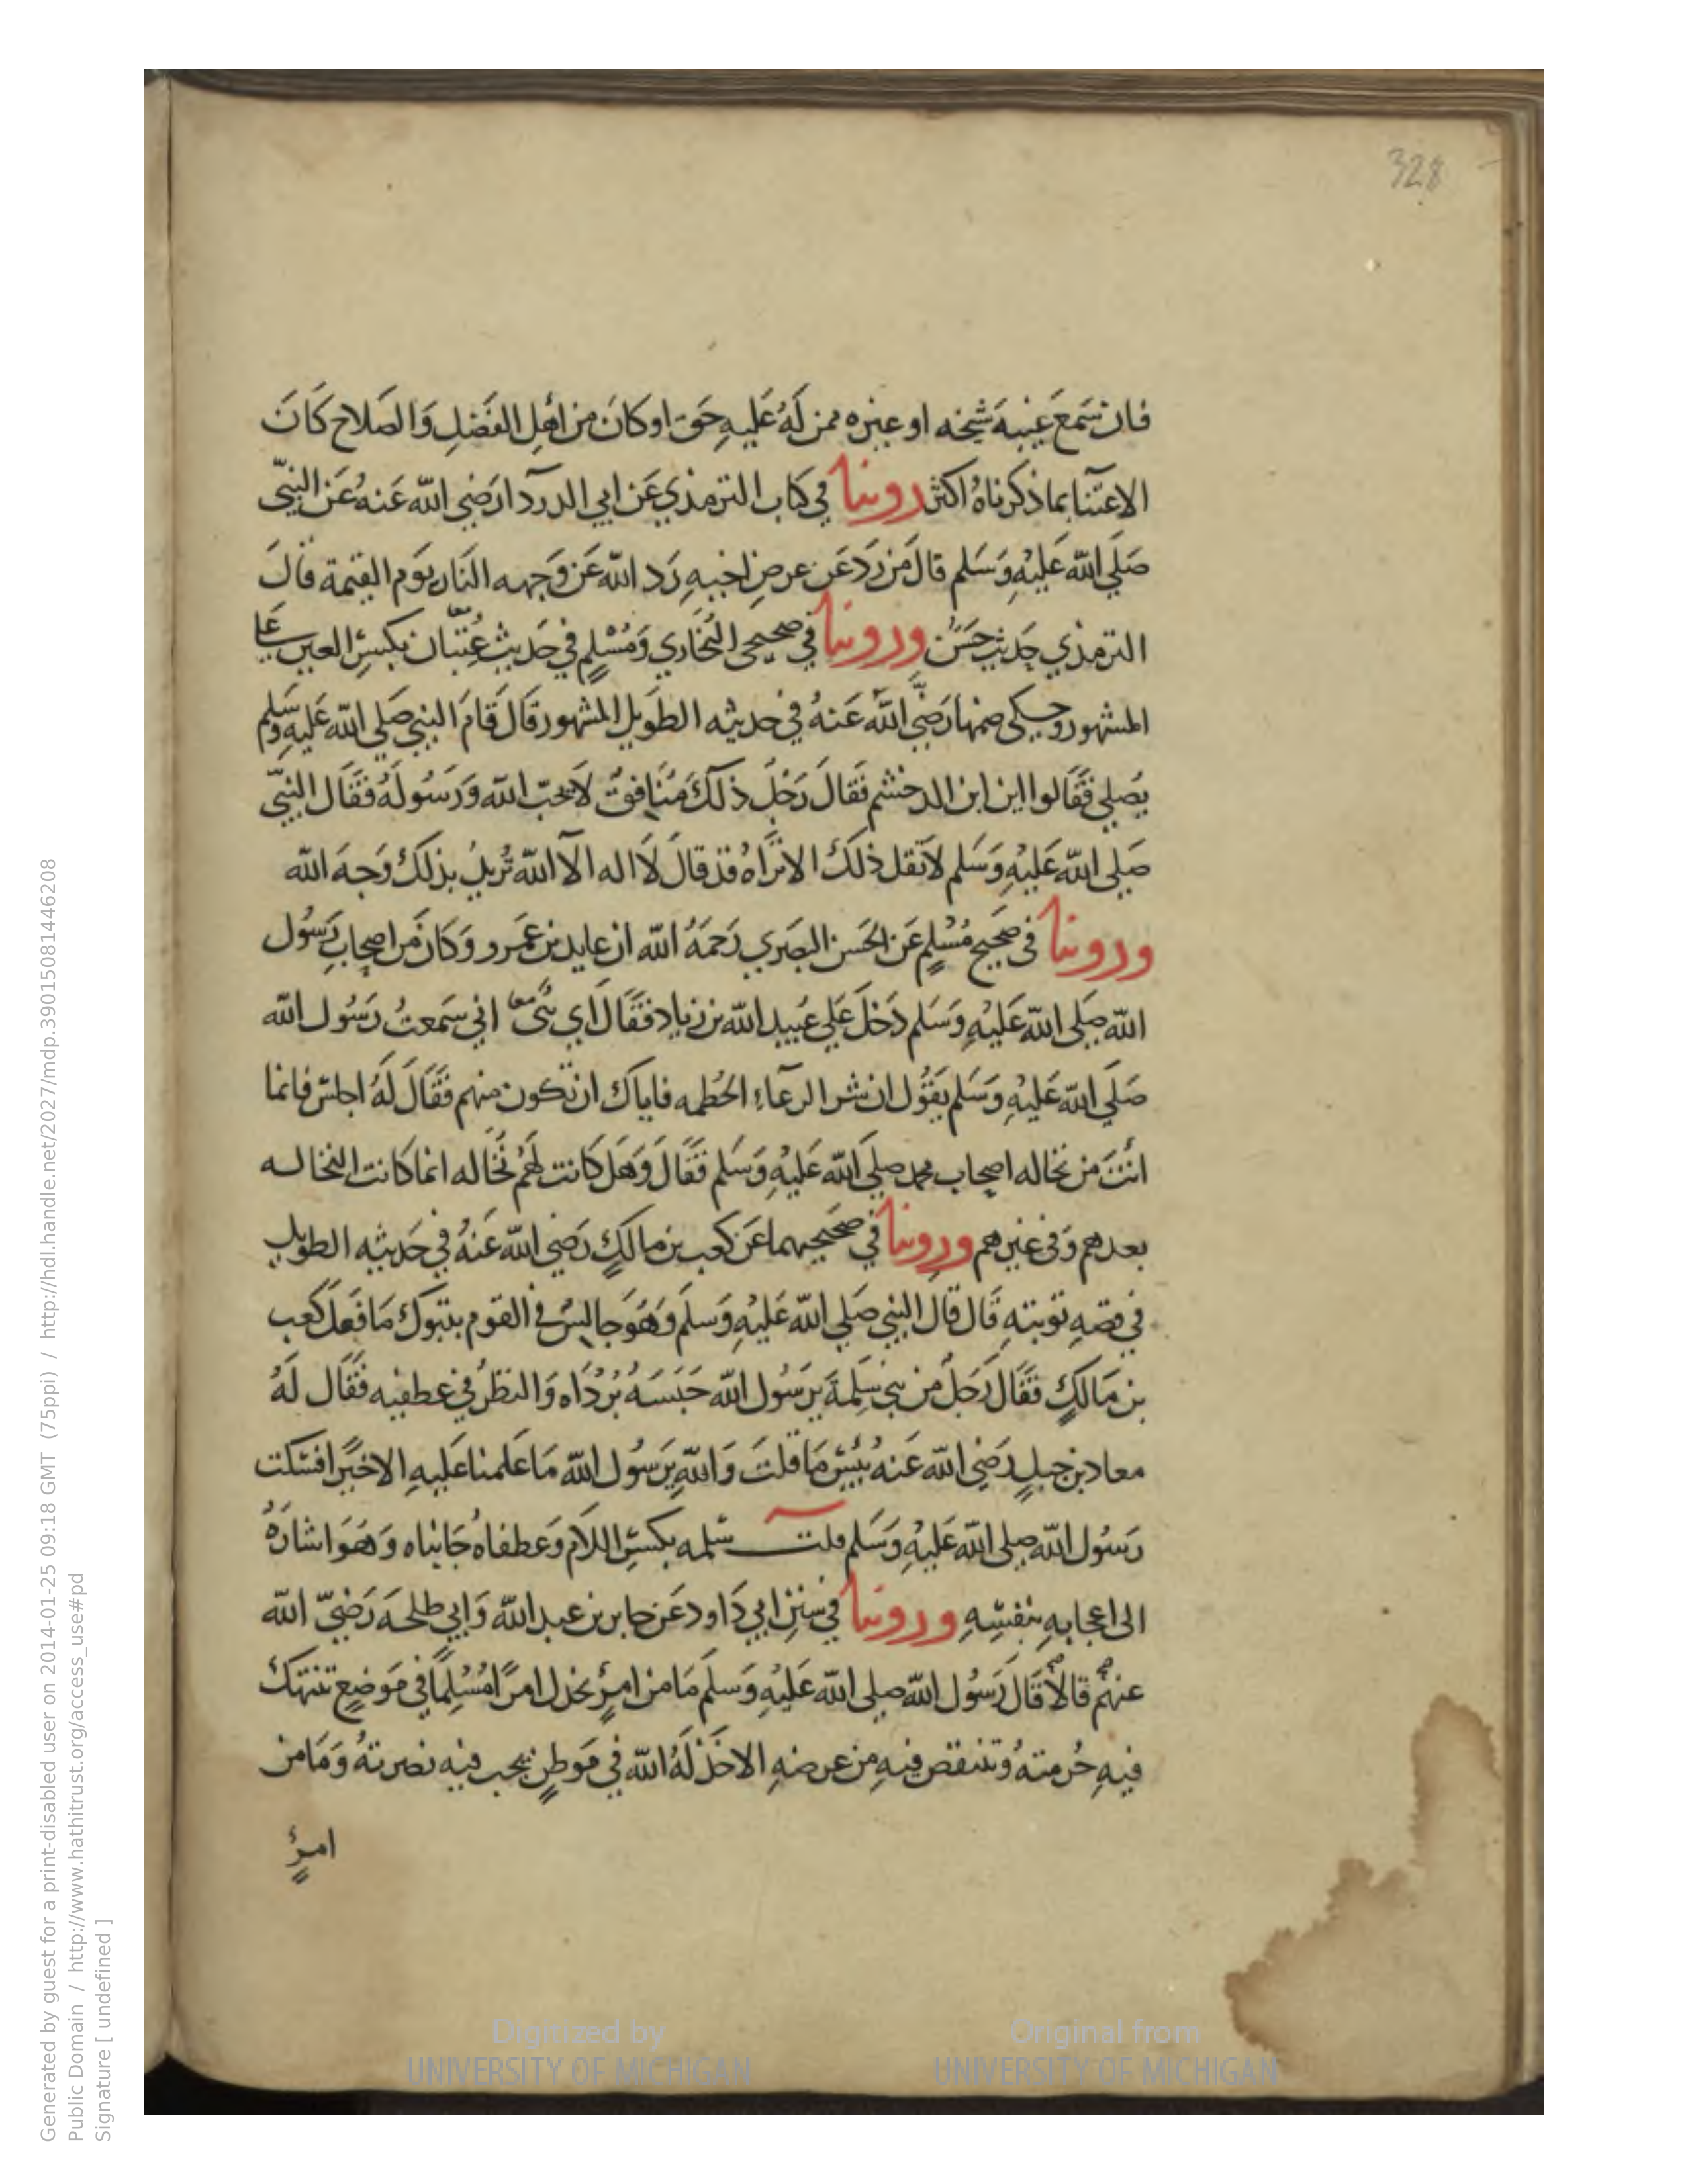 328
فان سَمعَ غيبةَ شيخه او غيره ممن لَهُ عَليهِ حَق او كانَ من اَهلِ الفَضلِ وَالصَلاح كَانَ
الاعتنآ بما ذكرناهُ اكثر روينا في كتاب الترمذي عَن ابي الدردآ رَضي الله عَنهُ عَن النبيّ
صَلَي الله عَليْهِ وَسَلم قالَ مَن رَدَ عَن عرضِ اخيهِ رَد الله عَن وَجهه النَار يَوم القيمة قالَ
الترمذي حَديث حَسَنٌ وروينا في صحيحى البُخَاري وَمُسْلِمٍ في حَديث عُِتبَان بكسْرِ العين عَلي
المشهور وحكى ضمها رَضيَّ اللَّه عَنهُ في حديثه الطويل المشهور قَال قَامَ النبي صَلي الله عَليهِ وسَلم
يُصلي فقَالوا اين ابن الدخشم فَقالَ رَجُل ذلكَ مُنَافِقٌ لاَ يحَبّ الله وَرَسُولَهُ فَقَال النبيّ
صَلي الله عَليْهِ وَسَلم لاَ تقل ذلكَ الا تَراهُ قد قالَ لاَ اله الآ الله تُريدُ بذلكَ وَجهَ الله
وروينا في صَحيح مُسْلِمٍ عَن الحَسن البصَري رَحمَهُ الله ان عايد بن عَمرو وَكانَ مَن اصحابِ رَسُول
الله صَلى الله عَليْهِ وَسَلم دَخلَ عَلي عُبيد الله بن زياد فقَالَ اَي بُنَىّ اني سَمعتُ رَسُول الله
صَلَي الله عَليْهِ وَسَلم يَقوُل ان شر الرعَآءِ الحُطمه فاياكَ ان تكون منهم فَقَالَ لَهُ اجلسْ فانما
انَتَ من نخاله اصحاب محمد صلي الله عَليْهِ وَسَلم فَقَالَ وَهَل كَانت لهُمْ نُخَاله انما كانت النخاله
بعدهم وَفى غيرهم وروينا في صَحيحيهما عَن كعب بن مالكٍ رَضي الله عَنهُ في حَديثه الطويل
في قصهِ توبتهِ قَال قالَ النبي صَلي الله عَليْهِ وَسلَم وَهُوَ جالِسٌ في القوم بتبوكَ مَا فَعلَ كَعب
بن مَالكٍ فقَال رَجَلٌ من بني سَلِمةَ يرَسُول الله حَبسَهُ بُرْدَاه وَالنظرُ في عطفيه فَقَال لَهُ
معاد بن جبلٍ رَضي الله عَنهُ بئِسْ مَا قلتَ وَاللهِ يرَسُول الله مَا عَلمنا عَليهِ الا خيرًا فسَكت
رَسُول الله صلى الله عَليْهِ وَسَلم قلت سَلمه بكسْرِ اللام وَعطفاهُ جَانباه وَهوَ اشارَةٌ
الى اعجابهِ بنفسِهِ وروينا في سنَن ابي دَاود عَن جابر بن عبد الله وَابي طلحَه رَضيَّ الله
عنهُم قالاَ قَالَ رَسُول الله صلى الله عَليْهِ وَسلَم مَا من امرِئٍ يخذل امرًا مُسْلِمًا في مَوضِعٍ تنتهكَ
فيهِ حُرمتهُ وَتنتقص فيهِ من عرضهِ الا خَذلَهُ الله في مَوطنٍ يحب فيه نصرتهُ وَمَا من
امرئٍ
Generated by guest for a print-disabled user on 2014-01-25 09:18 GMT (75ppi) / http://hdl.handle.net/2027/mdp.39015081446208
Public Domain / http://www.hathitrust.org/access_use#pd
Signature [ undefined ]
Digitized by
UNIVERSITY OF MICHIGAN
Original from
UNIVERSITY OF MICHIGAN